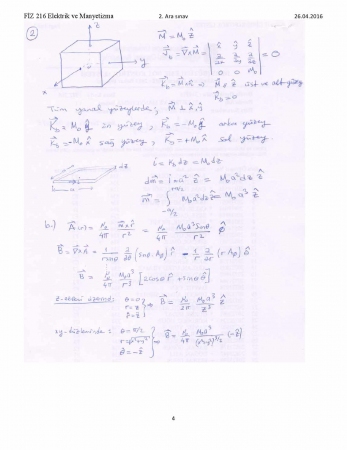 FİZ 216 Elektrik ve Manyetizma 2. Ara sınav 26.04.2016
②
M⃗ = M₀ ẑ
J⃗_b = ∇⃗×M⃗ = | x̂ ŷ ẑ ; ∂/∂x ∂/∂y ∂/∂z ; 0 0 M₀ | = 0
z
y
x
K⃗_b = M⃗×n̂ ⇒ M⃗ ∥ ẑ üst ve alt yüzey
K⃗_b = 0
Tüm yanal yüzeylerde; M⃗ ⊥
K⃗_b = M₀ ŷ ön yüzey, K⃗_b = -M₀ ŷ arka yüzey
K⃗_b = -M₀ x̂ sağ yüzey, K⃗_b = +M₀ x̂ sol yüzey
i = K_b dz = M₀ dz
dm⃗ = i a² ẑ = M₀ a² dz ẑ
m⃗ = ∫ M₀ a² dz ẑ = M₀ a³ ẑ
b.) A⃗(r) = μ₀/4π m⃗×r̂/r² = μ₀/4π M₀a³ sinθ/r² φ̂
B⃗ = ∇⃗×A⃗ = 1/(r sinθ) ∂/∂θ (sinθ A_φ) r̂ - 1/r ∂/∂r (r A_φ) θ̂
B⃗ = μ₀/4π M₀a³/r³ [2cosθ r̂ + sinθ θ̂]
z-ekseni üzerinde: θ=0 r=z r̂=ẑ } ⇒ B⃗ = μ₀/2π M₀a³/z³ ẑ
xy-düzleminde: θ=π/2 r=√(x²+y²) θ̂=-ẑ } ⇒ B⃗ = μ₀/4π M₀a³/(x²+y²)^{3/2} (-ẑ)
4